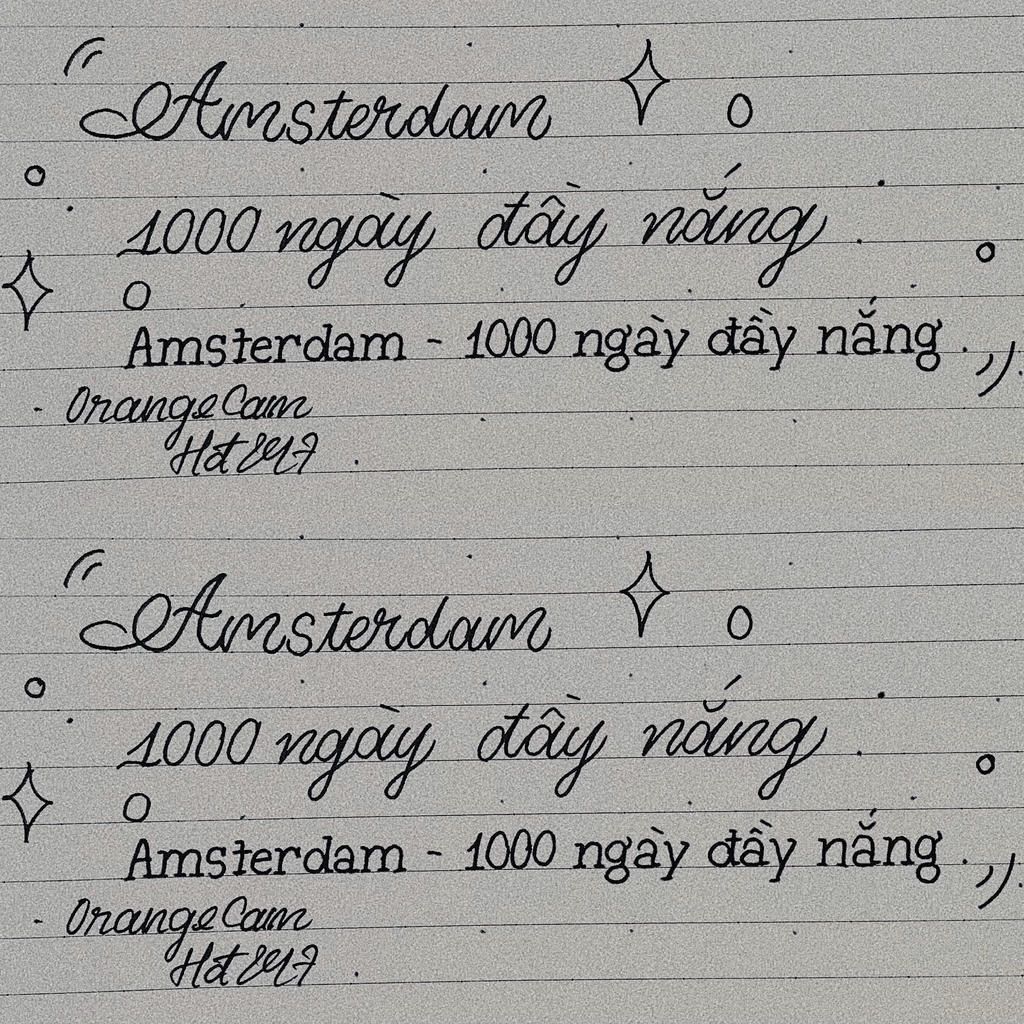 “Amsterdam
1000 ngày đầy nắng.
Amsterdam - 1000 ngày đầy nắng.”
- OrangeCam
“Amsterdam
1000 ngày đầy nắng.
Amsterdam - 1000 ngày đầy nắng.”
- OrangeCam